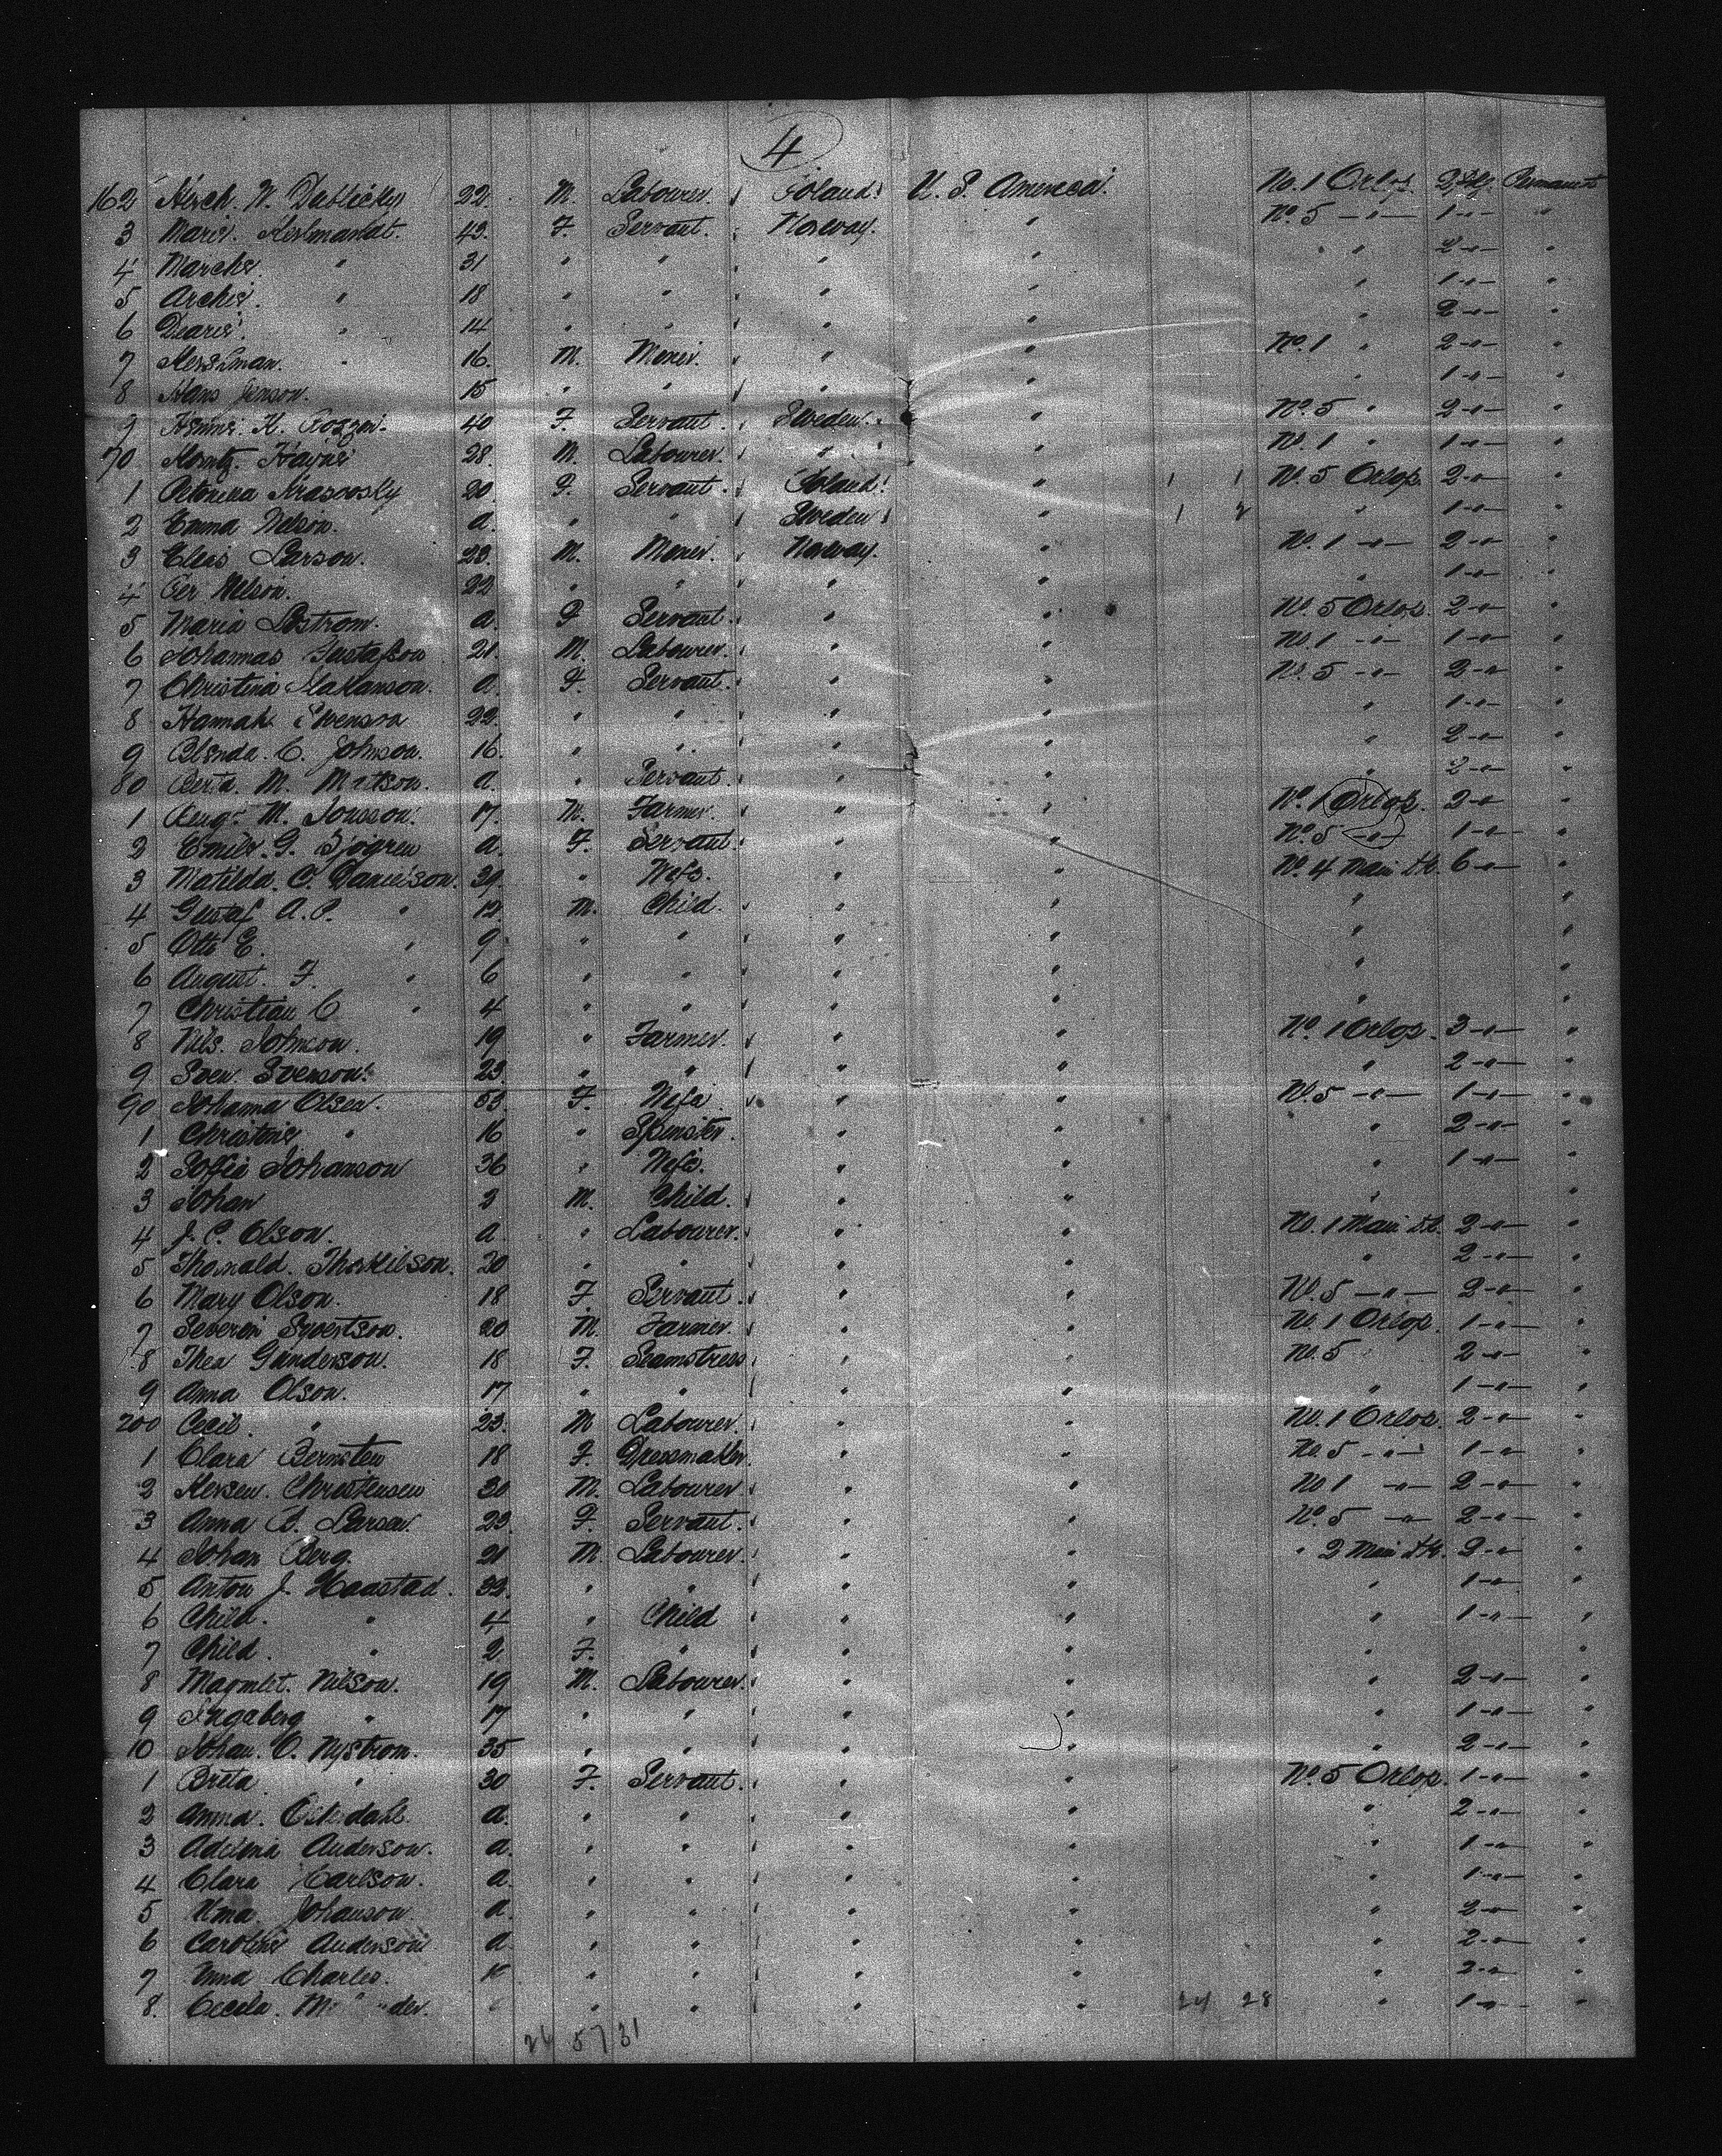 4
162 W. 22 M. Labourer. Poland U. S. America No. 1 Orlop. 2 Permanent
3 Marie. 43. F. Servant. Norway. " No. 5 -"- 1 -"- "
4 " 31 " " " " " 2 -"- "
5 " 18 " " " " " 1 -"- "
6 " 14 " " " " " 2 -"-
7 " 16. M. " " No. 1 " 2 -"- "
8 Hans Jenson. 15 " " " " " 1 -"- "
9 K. 40 F. Servant. Sweden. " No. 5 " 2 -"- "
70 28. M. Labourer. " " No. 1 " 1 -"- "
1 20. F. Servant. Poland " 1 1 No. 5 Orlop. 2 -"- "
2 Emma Nelson. a. " " Sweden " 1 2 " 1 -"- "
3 Elias Larson. 23. M. Norway. " No. 1 -"- 2 -"- "
4 Per Nelson. 22 " " " " " 1 -"- "
5 Maria a. F Servant. " " No. 5 Orlop. 2 -"- "
6 Johannas Gustafson 21. M. Labourer. " " No. 1 -"- 1 -"- "
7 Christina Hakanson. a. F. Servant. " " No. 5 -"- 2 -"- "
8 Hannah Swenson 22. " " " " " 1 -"- "
9 Blenda. C. Johnson. 16. " " " " " 2 -"-
80 Berta. M. Mattson. a. " Servant. " " " 2 -"- "
1 M. Jonsson. 17. M. Farmer. " " No. 1 Orlop. 2 -"- "
2 G. Sjogren a. F. Servant. " " No. 5 -"- 1 -"- "
3 Matilda. C. Danielson. 39. " Wife. " " No. 4 Main Dk. 6 -"- "
4 Gustaf A. P. " 12 M. Child. " " " "
5 Otto E. " 9 " " " " " "
6 August. F. " 6 " " " " " "
7 Christian C " 4 " " " " " "
8 Nils. Johnson. 19 " Farmer. " " No. 1 Orlop. 3 -"- "
9 Sven. Svenson. 23. " " " " " 2 -"- "
90 Johanna Olsen. 53. F. Wife " " No. 5 -"- 1 -"- "
1 Christine " 16 " Spinster. " " " 2 -"- "
2 Soffia Johanson 36 " Wife. " " " 1 -"- "
3 Johan 2 M. Child. " " " "
4 J. C. Olson. a. " Labourer. " " No. 1 Main Dk. 2 -"- "
5 20 " " " " " 2 -"- "
6 Mary Olson. 18 F. Servant. " " No. 5 -"- 2 -"- "
7 Severin Syvertson. 20 M. Farmer. " " No. 1 Orlop. 1 -"- "
8 Thea Gunderson. 18 F. Seamstress " " No. 5 2 -"- "
9 Anna Olson. 17 " " " " " 1 -"- "
200 " 23. M Labourer. " " No. 1 Orlop. 2 -"- "
1 Clara Bernsten 18 F. Dressmaker. " " No. 5 -"- 1 -"- "
2 Christensen 30 M. Labourer " " No 1 -"- 2 -"- "
3 Anna B. Larsen. 23. F. Servant. " " No. 5 -"- 2 -"- "
4 Johan Berg. 21 M. Labourer. " " " 2 Main Dk. 2 -"- "
5 Anton J. Haastad. 32. " " " " " 1 -"- "
6 Child. " 4 " Child " " " 1 -"- "
7 Child. " 2 F. " " " "
8 Nilson. 19 M. Labourer. " " " 2 -"- "
9 Ingaberg " 17 " " " " " 1 -"- "
10 Johan. O. Nystrom. 35 " " " " " 2 -"- "
1 Breta " 30 F. Servant. " " No. 5 Orlop. 1 -"- "
2 Anna. Osterdahl. a. " " " " " 2 -"- "
3 Anderson. a. " " " " " 1 -"- "
4 Clara Carlson. a. " " " " " 1 -"- "
5 Johanson a. " " " " " 2 -"- "
6 Caroline Anderson a. " " " " " 2 -"- "
7 Charles. " " " " " 2 -"- "
8. " " " " 24 28 " 1 -"- "
26 57 31